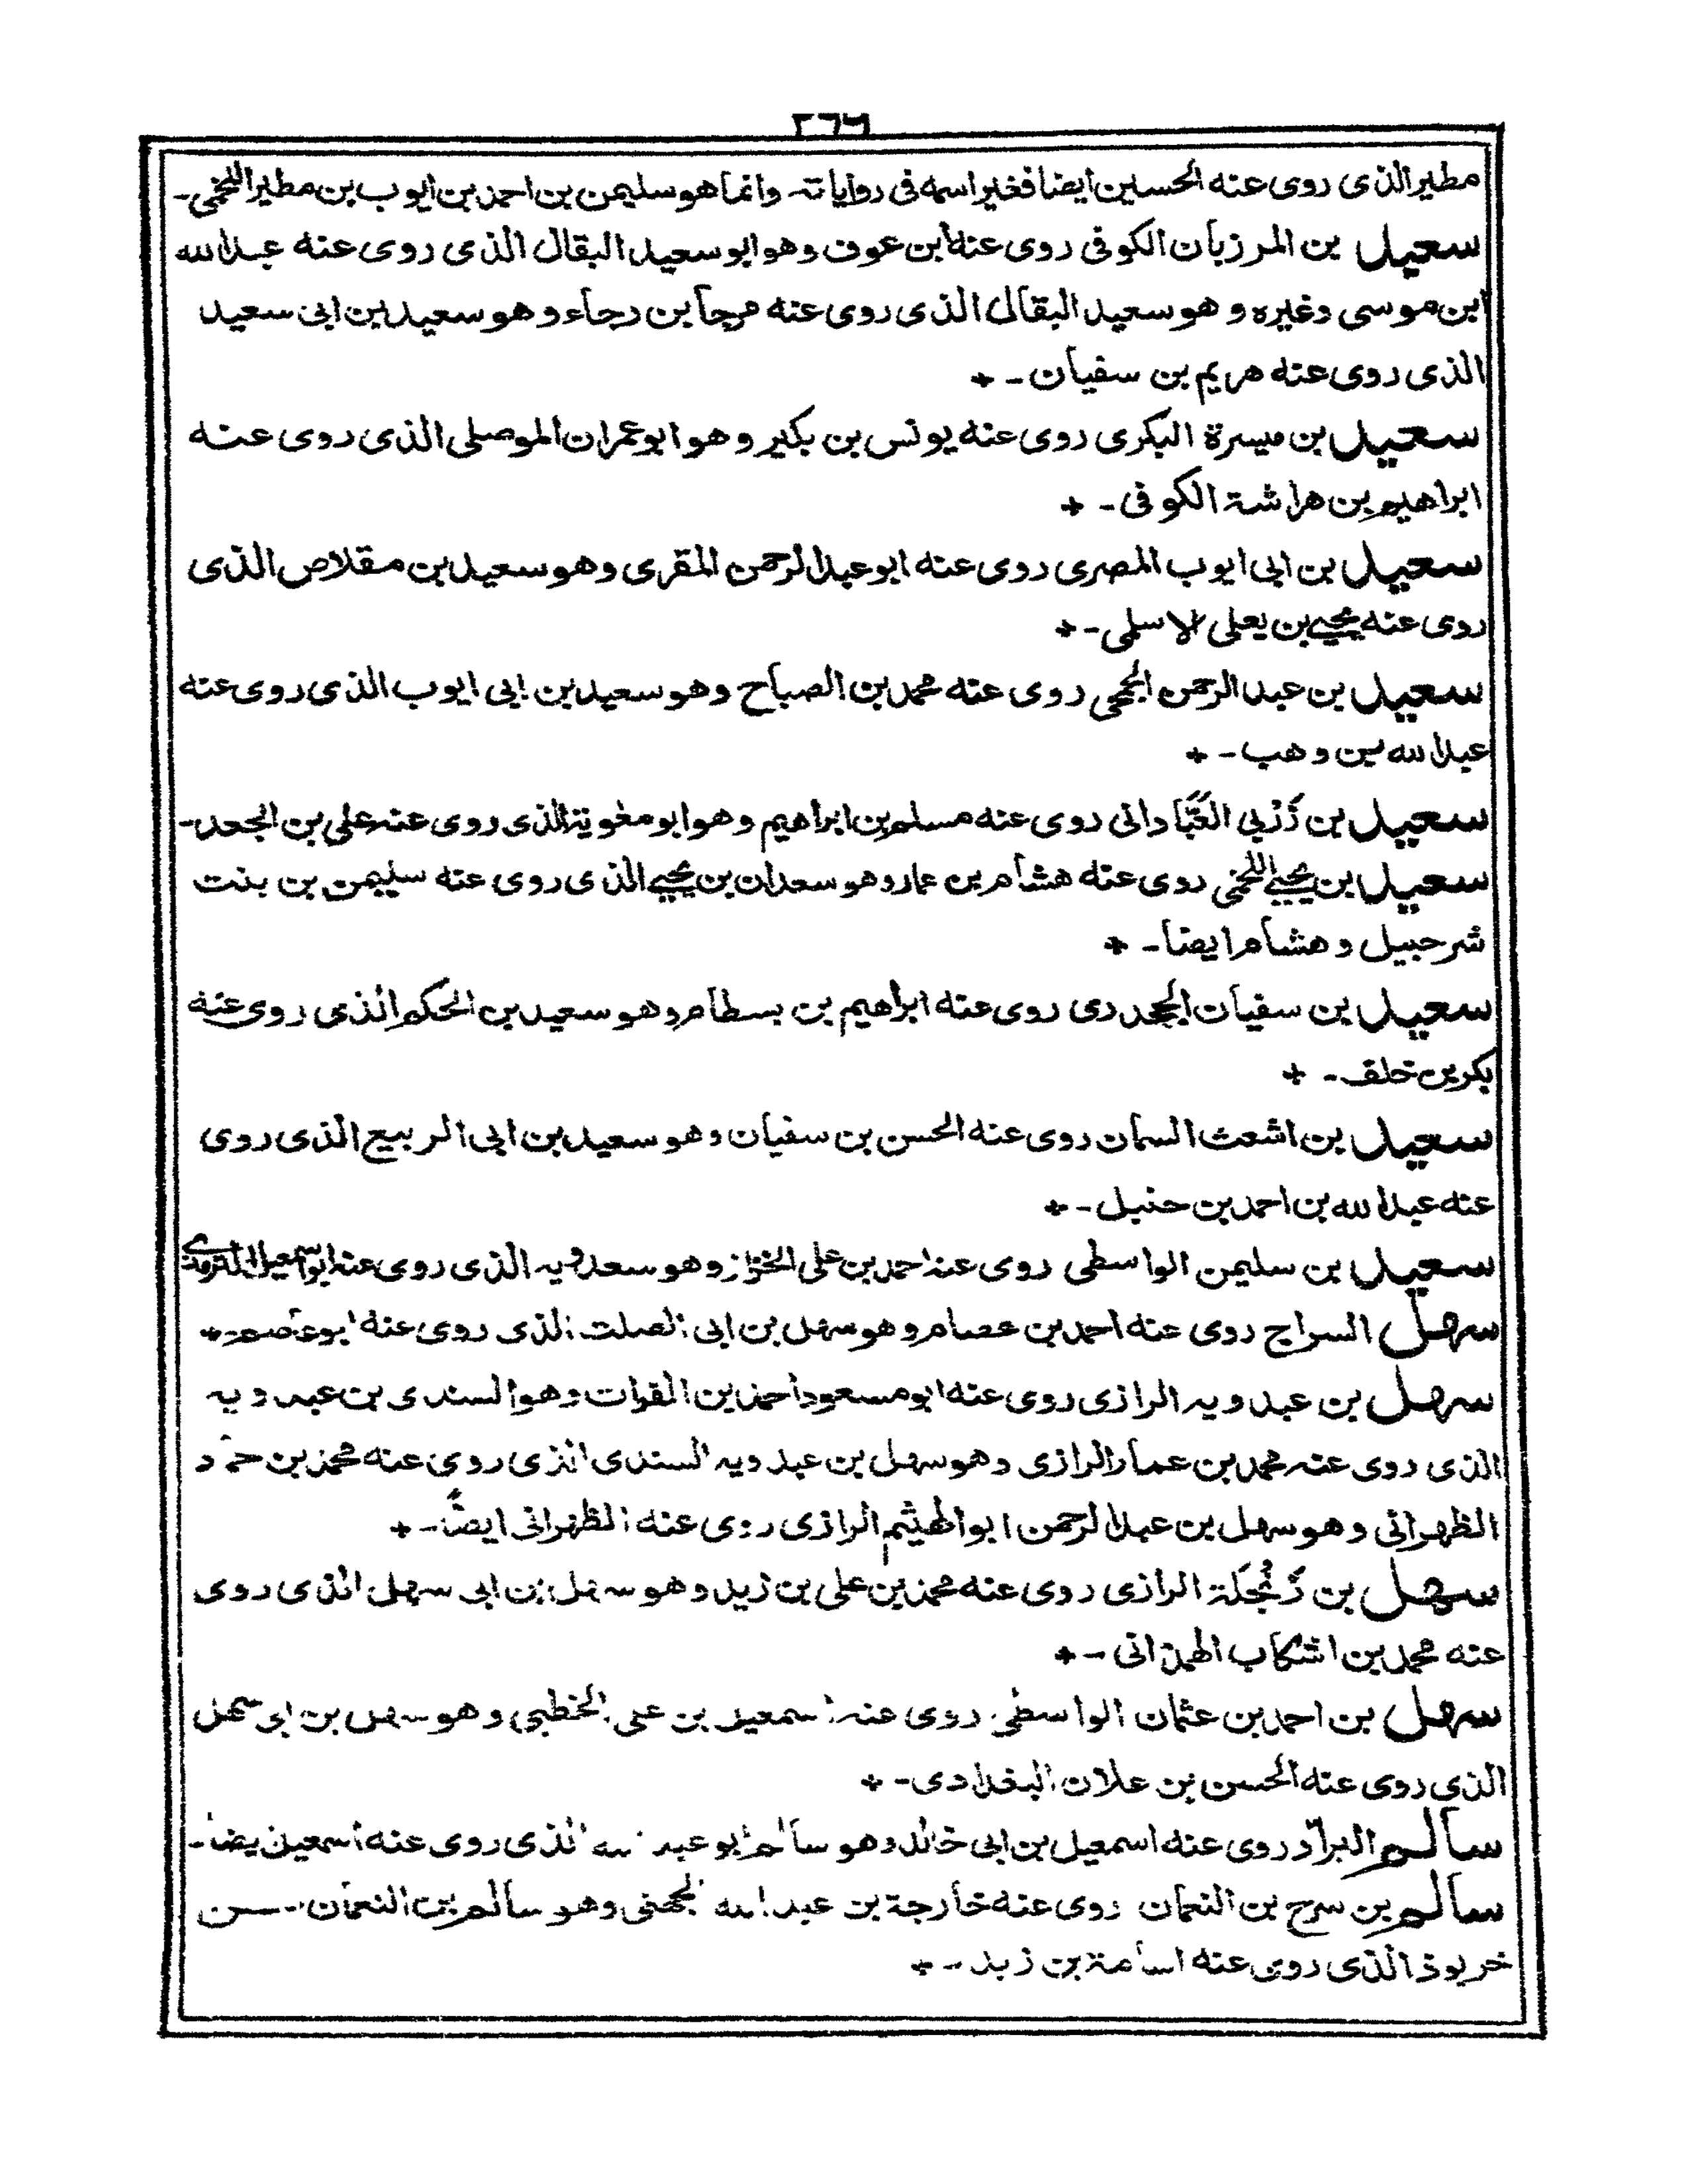 ٢٦٦
مطير الذى روى عنه الحسين ايضا فغير اسمه فى رواياته وانما هو سليمن بن احمد بن ايوب بن مطير اللخمى۔
سعيد بن المرزبان الكوفى روى عنه ابن عوف وهو ابو سعيد البقال الذى روى عنه عبد الله
ابن موسى وغيره و هو سعيد البقال الذى روى عنه مرجا بن رجاء و هو سعيد بن ابى سعيد
الذى روى عنه هريم بن سفيان۔ +
سعيد بن ميسرة البكرى روى عنه يونس بن بكير و هو ابو عمران الموصلى الذى روى عنه
ابراهيم بن هراشة الكوفى۔ +
سعيد بن ابى ايوب المصرى روى عنه ابو عبد الرحمن المقرى وهو سعيد بن مقلاص الذى
روى عنه يحيى بن يعلى الاسلمى۔ +
سعيد بن عبد الرحمن الجمحى روى عنه محمد بن الصباح وهو سعيد بن ابى ايوب الذى روى عنه
عبد الله بن وهب۔ +
سعيد بن زَرْبي العَبَّاداني روى عنه مسلم بن ابراهيم وهو ابو معٰوية الذى روى عنه على بن الجعد۔
سعيد بن يحيى اللخمى روى عنه هشام بن عمار وهو سعدان بن يحيى الذى روى عنه سليمن بن بنت
شرحبيل و هشام ايضا۔ +
سعيد بن سفيان الجحدرى روى عنه ابراهيم بن بسطام وهو سعيد بن الحكم الذى روى عنه
بكر بن خلف۔ +
سعيد بن اشعث السمان روى عنه الحسن بن سفيان وهو سعيد بن ابى الربيع الذى روى
عنه عبد الله بن احمد بن حنبل۔ +
سعيد بن سليمن الواسطى روى عنه احمد بن على الخزاز وهو سعدويه الذى روى عنه ابو اسمعيل الترمذى
سهل السراج روى عنه احمد بن عصام وهو سهل بن ابى الصلت الذى روى عنه ابو عاصم۔ +
سهل بن عبدويه الرازى روى عنه ابو مسعود احمد بن الفرات وهو السندى بن عبدويه
الذى روى عنه محمد بن عمار الرازى وهو سهل بن عبدويه السندى الذى روى عنه محمد بن حماد
الظهرانى وهو سهل بن عبد الرحمن ابو الهيثم الرازى روى عنه الظهرانى ايضًا۔ +
سهل بن زَنْجَلَة الرازى روى عنه محمد بن على بن زيد وهو سهل بن ابى سهل الذى روى
عنه محمد بن اشكاب الهمذانى۔ +
سهل بن احمد بن عثمان الواسطى روى عنه اسمعيل بن على الخطبى وهو سهل بن ابى سهل
الذى روى عنه الحسن بن علان البغدادى۔ +
سالم البرّاد روى عنه اسمعيل بن ابى خالد وهو سالم ابو عبد الله الذى روى عنه اسمعيل ايضا۔
سالم بن سرج بن النعمان روى عنه خارجة بن عبد الله الجهنى وهو سالم بن النعمان
خربوذ الذى روى عنه اسامة بن زيد۔ +